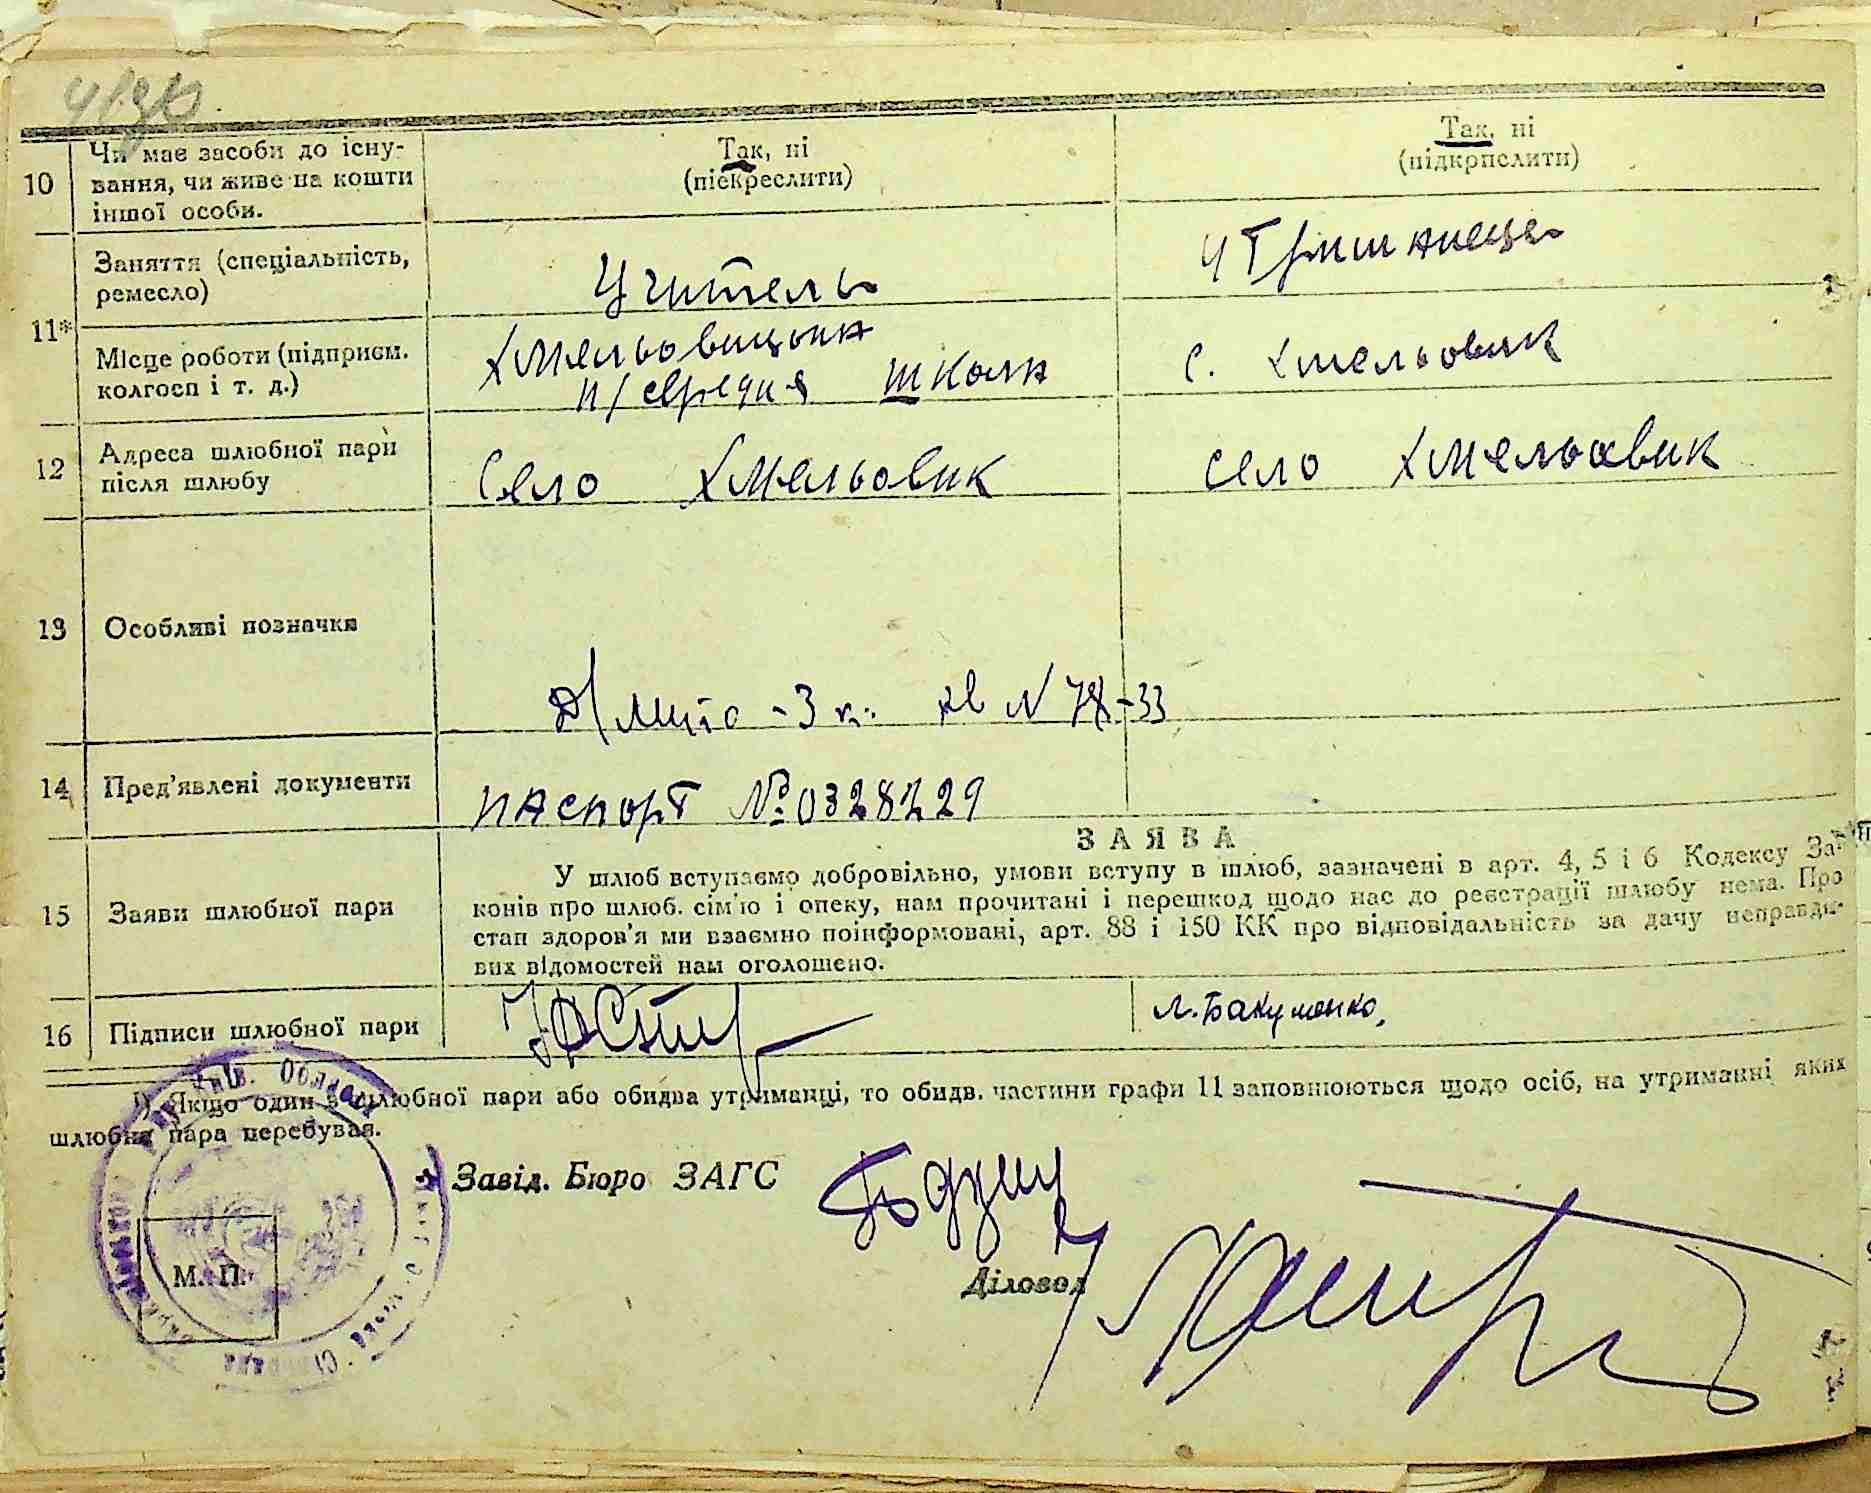 10 Чи має засоби до існу-
вання, чи живе на кошти
іншої особи.
Так, ні
(піекреслити)
Так, ні
(підкрпслити)
11* Заняття (спеціальність,
ремесло)
Учитель
Утриманець
Місце роботи (підприєм.
колгосп і т. д.)
Хмельовицька
н/середня школа
с. Хмельовик
12 Адреса шлюбної пари
після шлюбу
Село Хмельовик
село Хмельовик
13 Особливі позначки
Д/мито - 3 к. кв N 78-33
14 Пред'явлені документи
паспорт № 0328229
15 Заяви шлюбної пари
ЗАЯВА
У шлюб вступаємо добровільно, умови вступу в шлюб, зазначені в арт. 4, 5 і 6 Кодексу За-
конів про шлюб. сім'ю і опеку, нам прочитані і перешкод щодо нас до реєстрації шлюбу нема. Про
стан здоров'я ми взаємно поінформовані, арт. 88 і 150 КК про відповідальність за дачу неправди-
вих відомостей нам оголошено.
16 Підписи шлюбної пари
Л. Бакуменко
1) Якщо один з шлюбної пари або обидва утриманці, то обидв. частини графи 11 заповнюються щодо осіб, на утриманні яких
шлюбна пара перебуває.
Київ. Област
Завід. Бюро ЗАГС
Діловод
М. П.